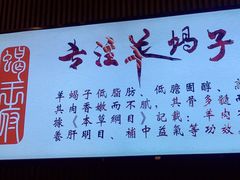 蝎王府
吉滢羊蝎子
羊蝎子低脂肪、低膽固醇、高
其肉香嫩而不膩，其骨多髓
據《本草綱目》記載：羊肉
養肝明目、補中益氣等功效